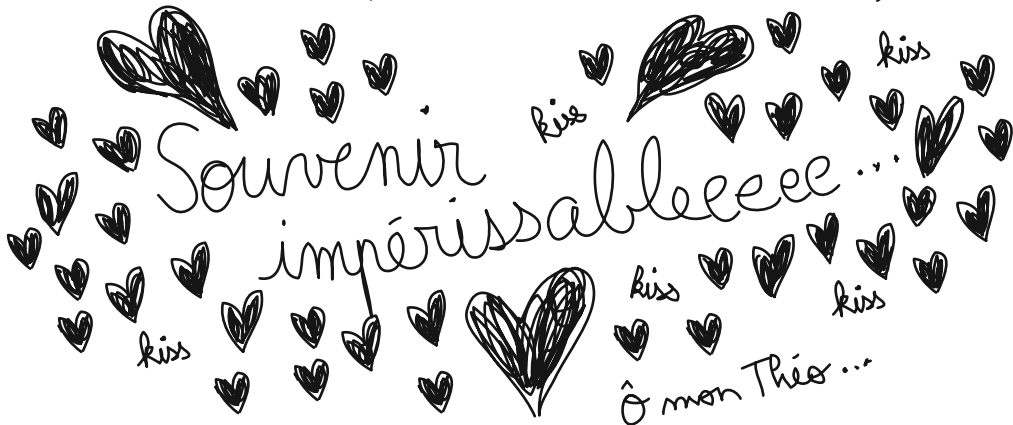 kiss
kiss
Souvenir
impérissableeeee...
kiss
kiss
kiss
Ô mon Théo...